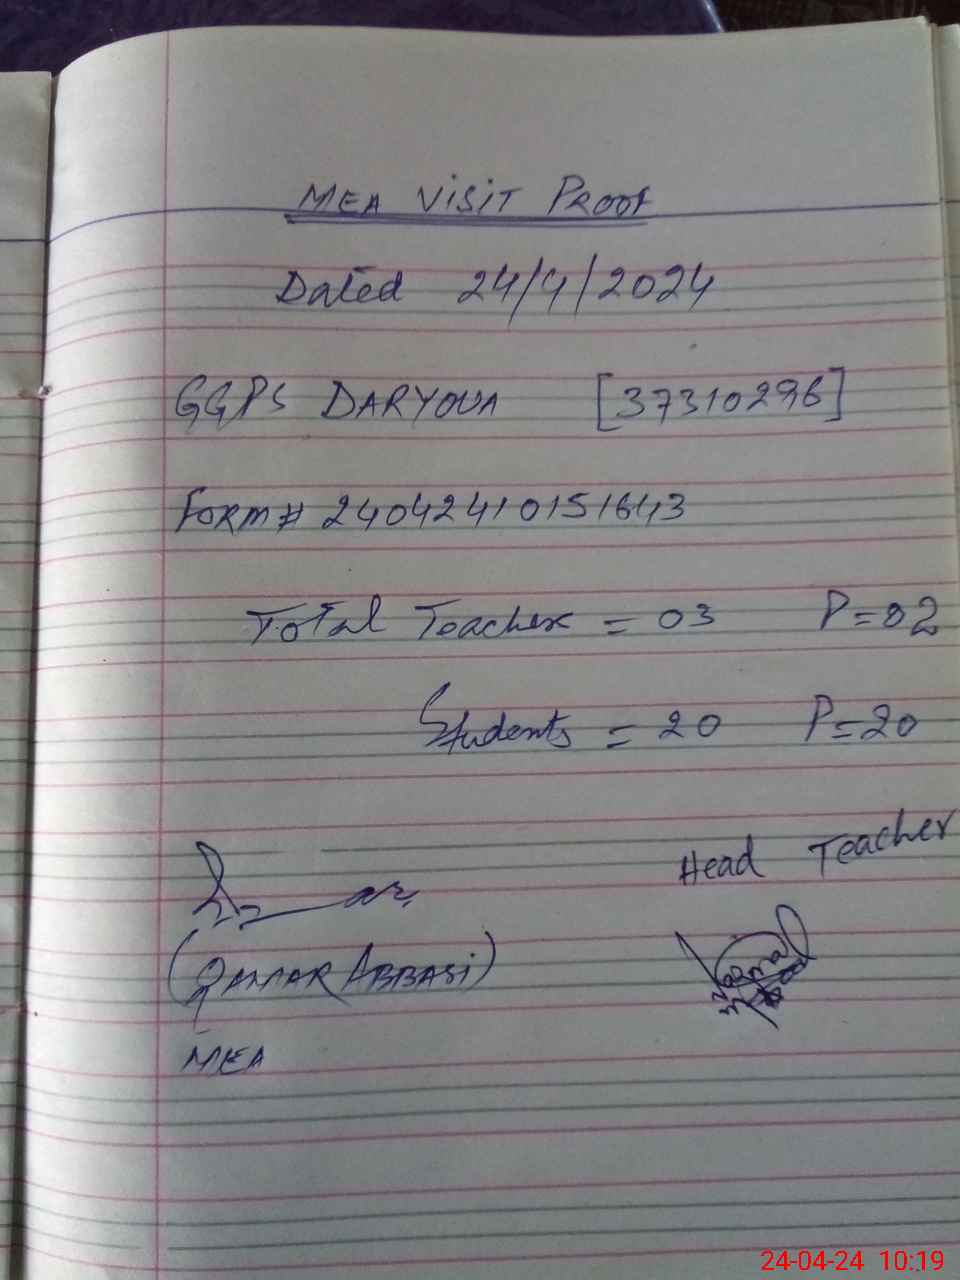 MEA VISIT PROOF
Dated 24/4/2024
GGPS DARYOVA [37310296]
Form# 24042410151643
Total Teacher = 03 P=02
Students = 20 P=20
Head Teacher
(QAMAR ABBASI)
MEA
24-04-24 10:19